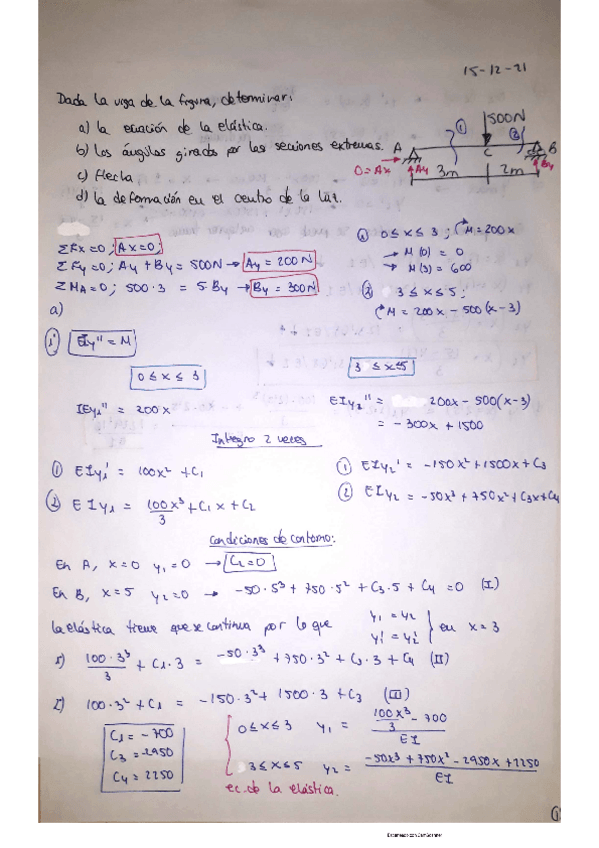 15-12-21
Dada la viga de la figura, determinar:
a) la ecuación de la elástica.
b) los ángulos girados por las secciones extremas.
c) flecha
d) la deformación en el centro de la luz.
500N
① ②
A C B
0=Ax Ay 3m 2m By
ΣFx=0; Ax=0;
ΣFy=0; Ay + By = 500N → Ay = 200N
ΣMA=0; 500·3 = 5By → By = 300N
① 0≤x≤3; M=200x
→ M(0) = 0
→ M(3) = 600
② 3≤x≤5;
M = 200x - 500(x-3)
a)
EIy'' = M
0≤x≤3
3≤x≤5
IEy1'' = 200x
EIy2'' = 200x - 500(x-3)
= -300x + 1500
Integro 2 veces
① EIy1' = 100x² + C1
② EIy1 = 100x³/3 + C1x + C2
① EIy2' = -150x² + 1500x + C3
② EIy2 = -50x³ + 750x² + C3x + C4
Condiciones de contorno:
En A, x=0 y1=0 → C2=0
En B, x=5 y2=0 → -50·5³ + 750·5² + C3·5 + C4 = 0 (I)
la elástica tiene que se continua por lo que y1 = y2 y1' = y2' } en x=3
1) 100·3³/3 + C1·3 = -50·3³ + 750·3² + C3·3 + C4 (II)
2) 100·3² + C1 = -150·3² + 1500·3 + C3 (III)
C1 = -700
C3 = -2950
C4 = 2250
0≤x≤3 y1 = 100x³/3 - 700 / EI
3≤x≤5 y2 = -50x³ + 750x² - 2950x + 2250 / EI
ec. de la elástica.
①
Escaneado con CamScanner